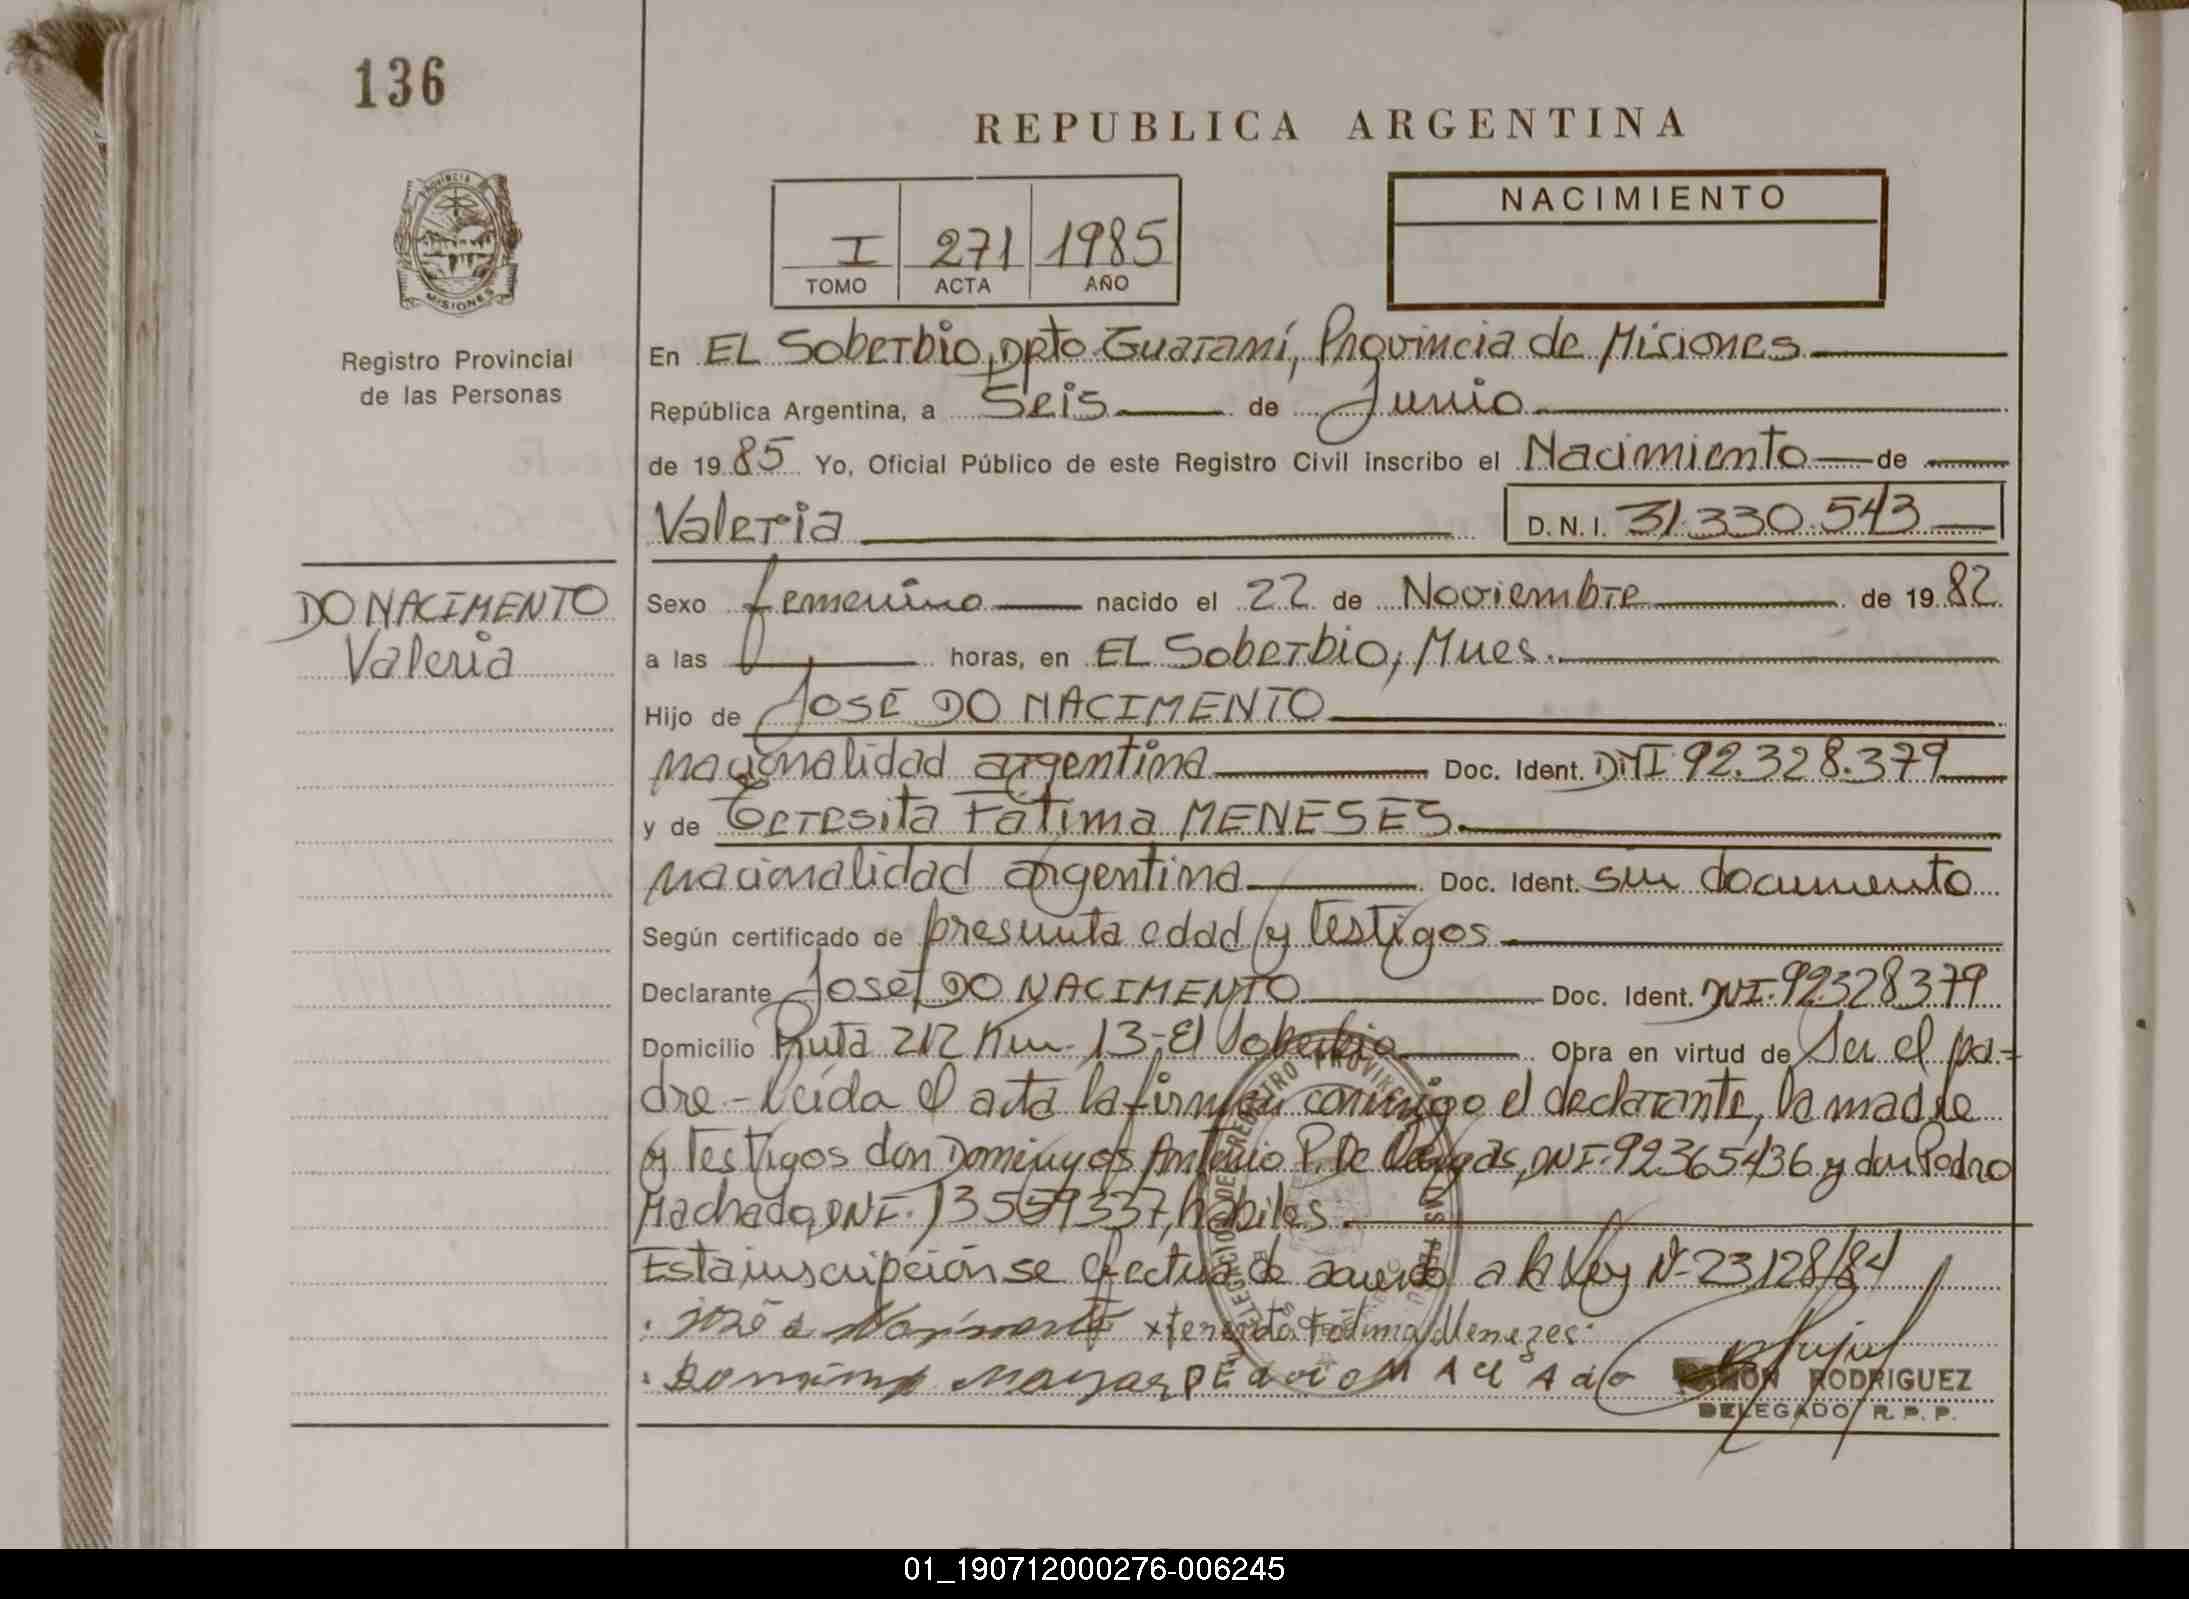 136
REPUBLICA ARGENTINA
PROVINCIA
MISIONES
Registro Provincial
de las Personas
NACIMIENTO
I 271 1985
TOMO ACTA AÑO
En EL Soberbio, Dpto Guaraní, Provincia de Misiones
República Argentina, a Seis de Junio
de 1985 Yo, Oficial Público de este Registro Civil inscribo el Nacimiento de
Valeria D.N.I. 31.330.543
DO NACIMENTO
Valeria
Sexo femenino nacido el 22 de Noviembre de 1982
a las horas, en EL Soberbio, Mnes.
Hijo de José DO NACIMENTO
nacionalidad argentina Doc. Ident. DNI 92.328.379
y de Teresita Fátima MENESES
nacionalidad argentina Doc. Ident. sin documento
Según certificado de presunta edad y testigos
Declarante José DO NACIMENTO Doc. Ident. DNI. 92328379
Domicilio Ruta 212 Km 13-El Soberbio Obra en virtud de Ser el pa-
dre - Leída el acta la firman conmigo el declarante, la madre
y testigos don Domingos Antonio P. De Vargas, DNI. 92365436 y don Pedro
Machado, DNI. 13559337, hábiles.
Esta inscripción se efectua de acuerdo a la Ley N- 23128/84
José x teresita Fátima Menezes
PEdrO MACHAdO RODRIGUEZ
DELEGADO R. P. P.
01_190712000276-006245